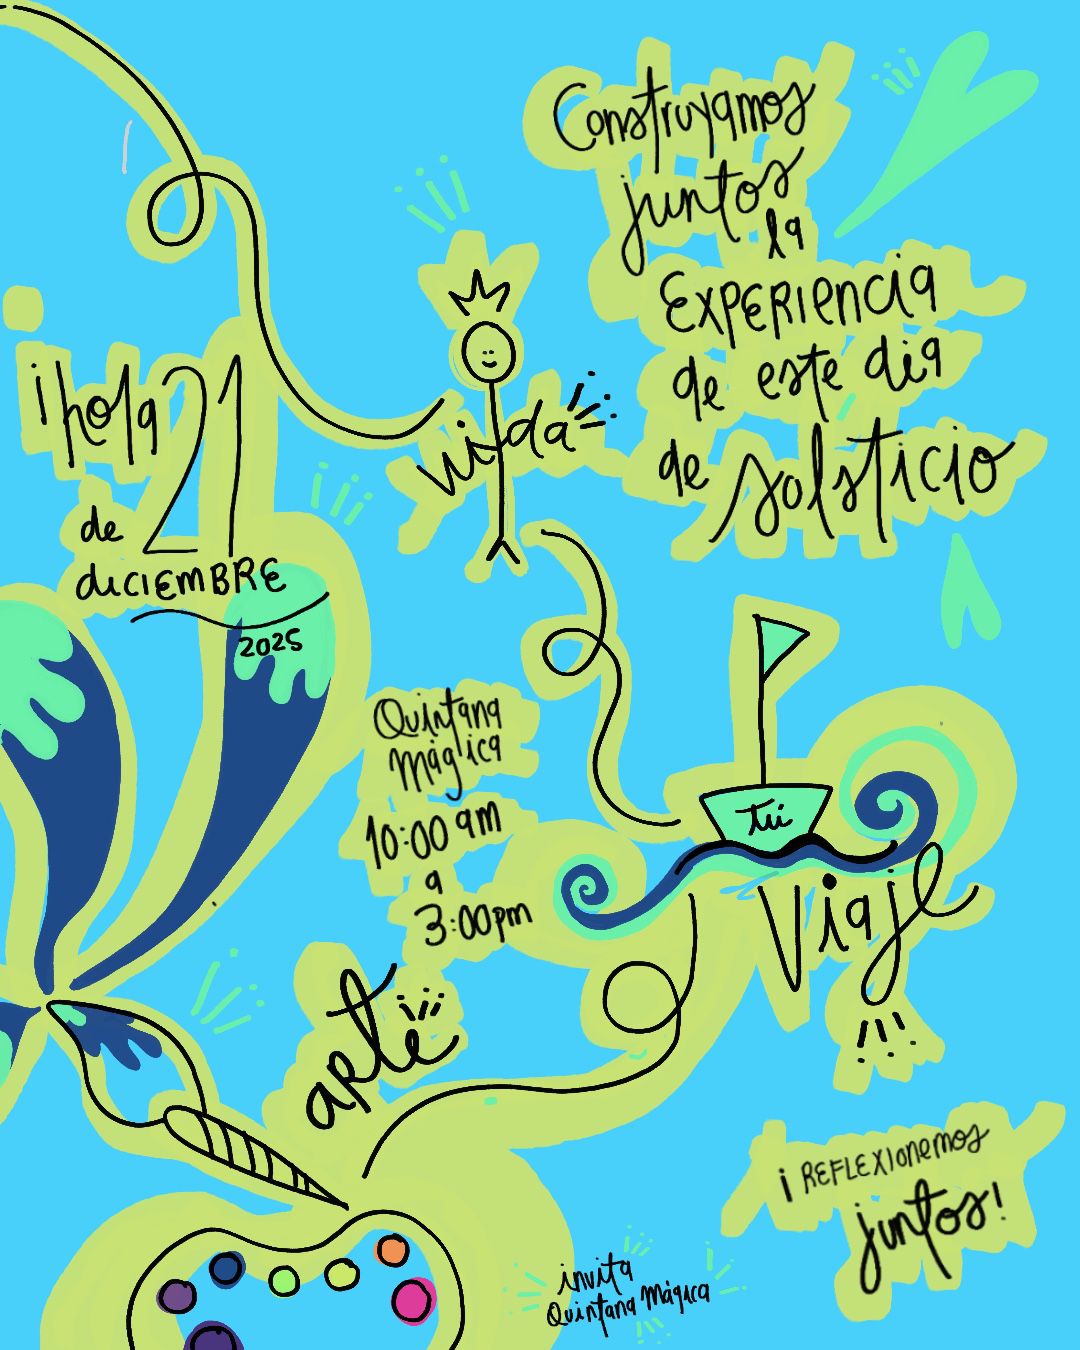 Construyamos
juntos
la
EXPERIENCIA
de este dia
de solsticio
¡hola 21
de
diciEMBRE
2025
vida
Quintana
mágica
10:00 am
a
3:00pm
tú
Viaje
arte
¡REFLEXIonemos
juntos!
invita
Quintana mágica